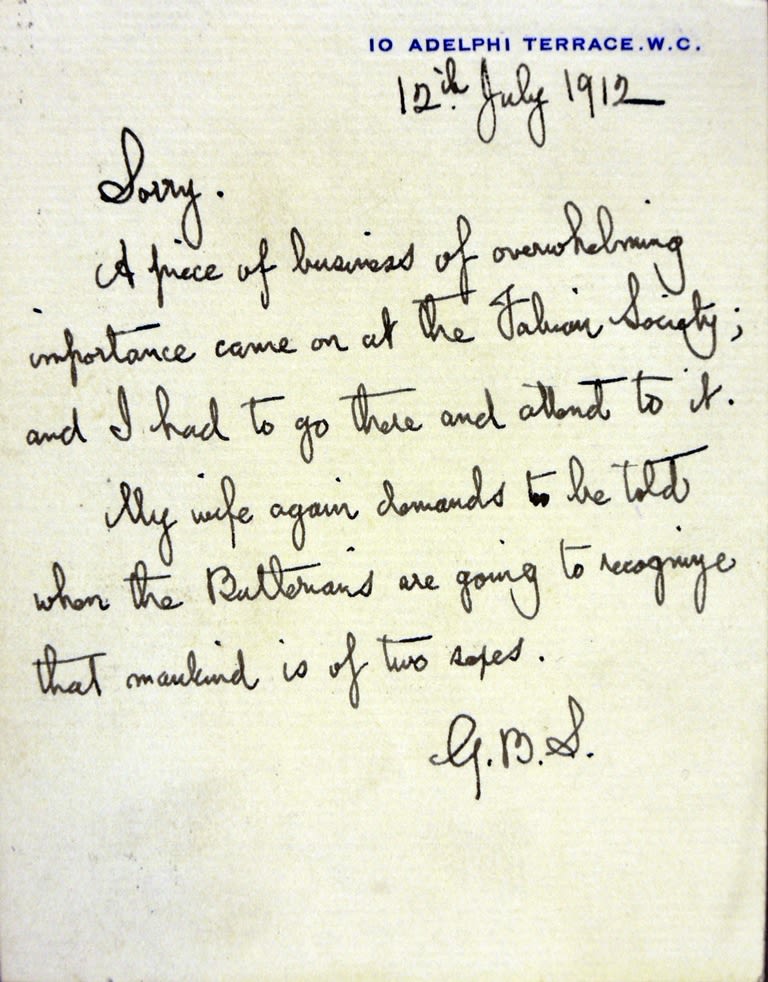 10 ADELPHI TERRACE.W.C.
12th July 1912
Sorry.
A piece of business of overwhelming
importance came on at the Fabian Society;
and I had to go there and attend to it.
My wife again demands to be told
when the Butlerians are going to recognize
that mankind is of two sexes.
G.B.S.